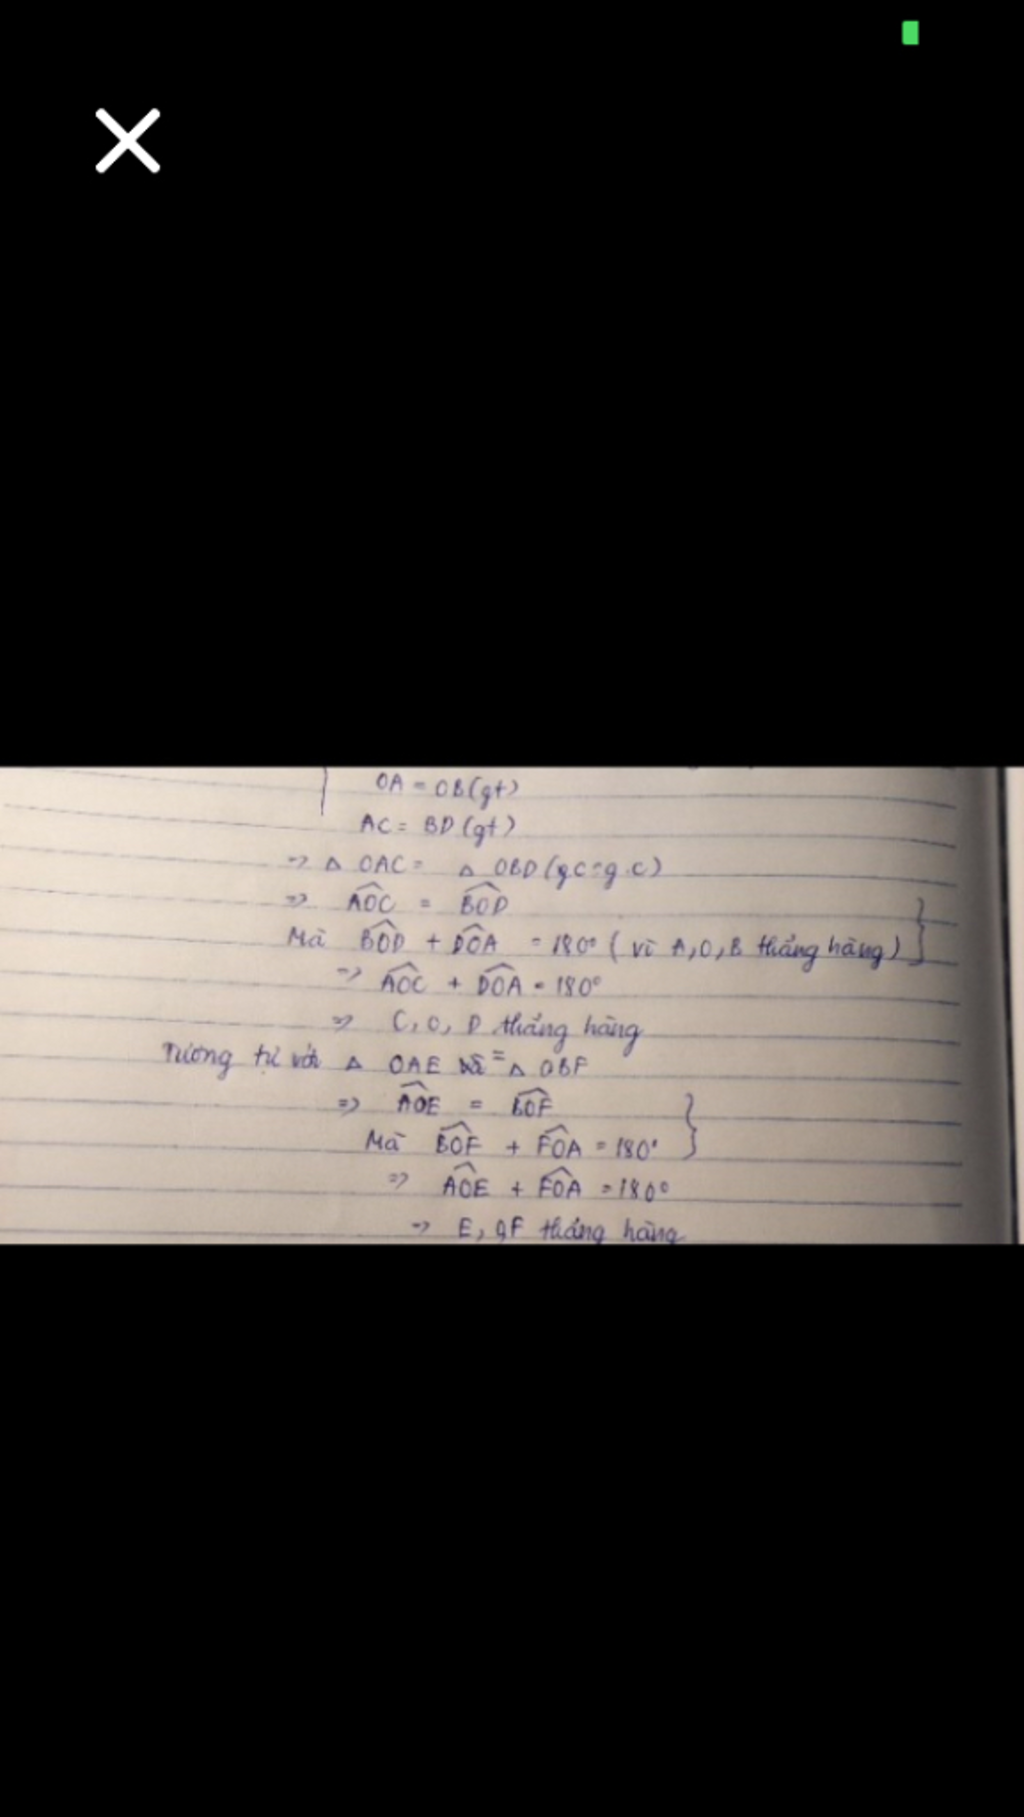 OA = OB (gt)
AC = BD (gt)
=> △ OAC = △ OBD (g.c=g.c)
=> \widehat{AOC} = \widehat{BOD}
Mà \widehat{BOD} + \widehat{DOA} = 180° ( vì A, O, B thẳng hàng)
=> \widehat{AOC} + \widehat{DOA} = 180°
=> C, O, D thẳng hàng
Tương tự với △ OAE = △ OBF
=> \widehat{AOE} = \widehat{BOF}
Mà \widehat{BOF} + \widehat{FOA} = 180°
=> \widehat{AOE} + \widehat{FOA} = 180°
=> E, O, F thẳng hàng